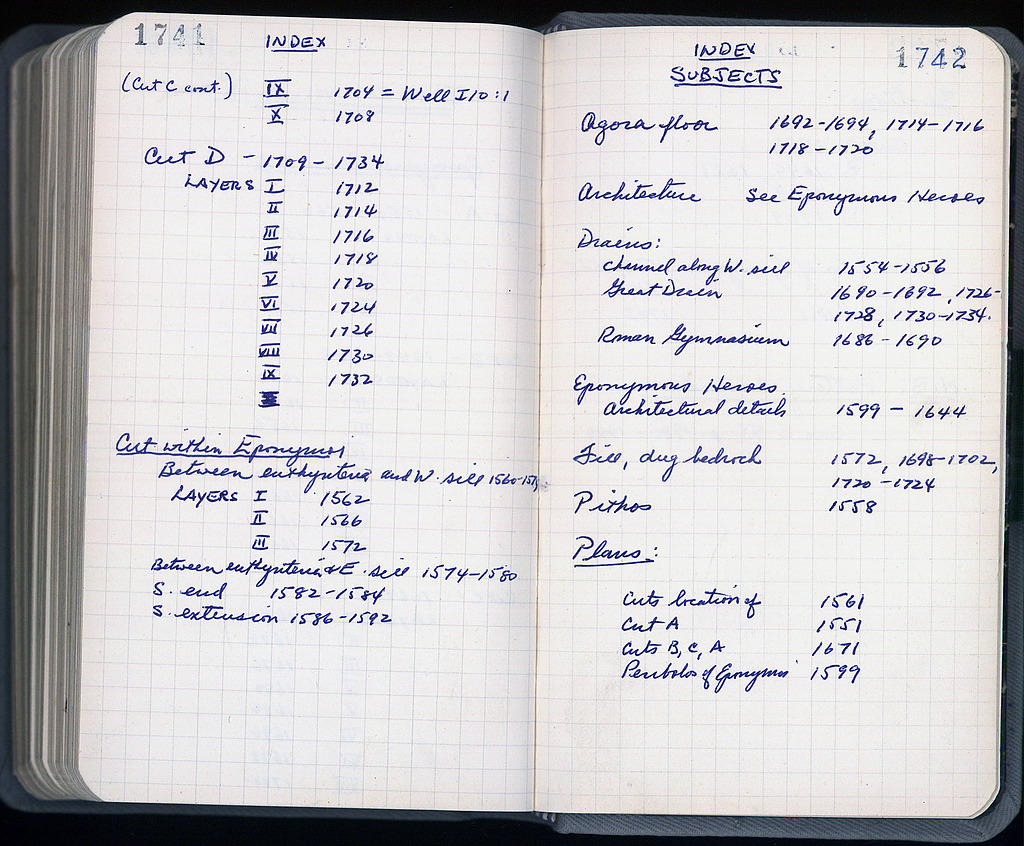 1741
INDEX
(Cut C cont.) IX 1704 = Well I 10:1
X 1708
Cut D – 1709 – 1734
LAYERS I 1712
II 1714
III 1716
IV 1718
V 1720
VI 1724
VII 1726
VIII 1730
IX 1732
Cut within Eponymoi
Between euthynteria and W. sill 1560-157
LAYERS I 1562
II 1566
III 1572
Between euthynteria & E. sill 1574-1580
S. end 1582-1584
S. extension 1586-1592
1742
INDEX
SUBJECTS
Agora floor 1692-1694, 1714-1716
1718-1720
Architecture See Eponymous Heroes
Drains:
channel along W. sill 1554-1556
Great Drain 1690-1692, 1726-
1728, 1730-1734.
Roman Gymnasium 1686-1690
Eponymous Heroes
Architectural details 1599 - 1644
Fill, dug bedrock 1572, 1698-1702,
1720-1724
Pithos 1558
Plans:
Cuts location of 1561
Cut A 1551
Cuts B, C, A 1671
Peribolos of Eponymoi 1599